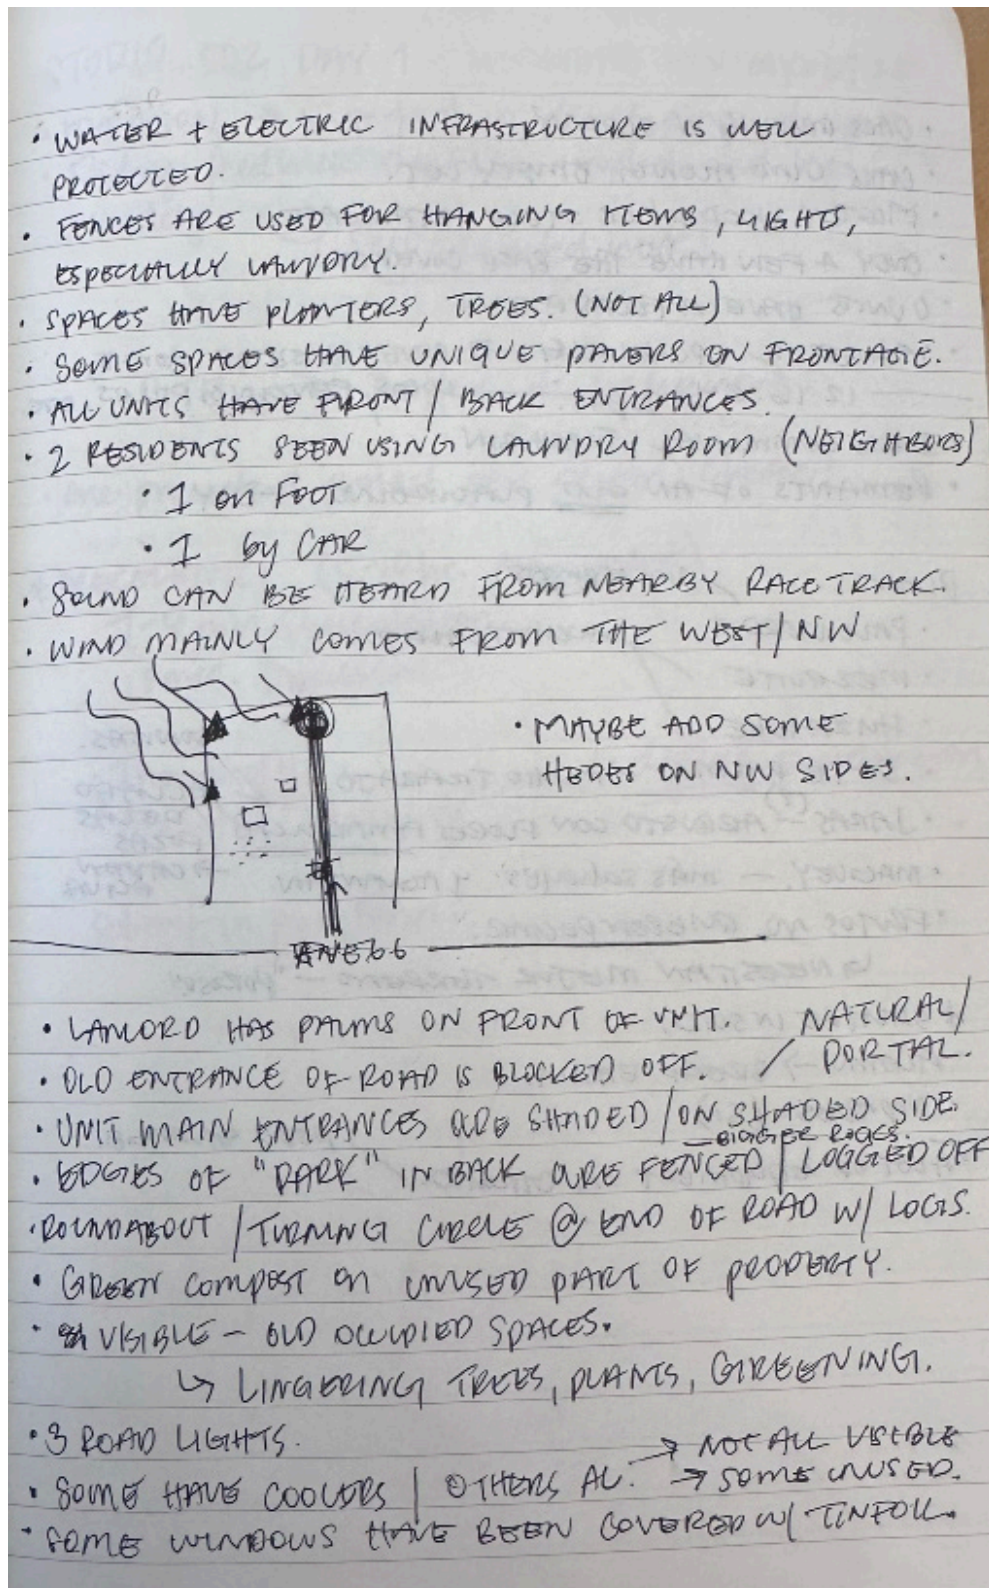 • WATER + ELECTRIC INFRASTRUCTURE IS WELL
PROTECTED.
• FENCES ARE USED FOR HANGING ITEMS, LIGHTS,
ESPECIALLY LAUNDRY.
• SPACES HAVE PLANTERS, TREES. (NOT ALL)
• SOME SPACES HAVE UNIQUE PAVERS ON FRONTAGE.
• ALL UNITS HAVE FRONT / BACK ENTRANCES.
• 2 RESIDENTS SEEN USING LAUNDRY ROOM (NEIGHBORS)
• 1 ON FOOT
• 1 by CAR
• SOUND CAN BE HEARD FROM NEARBY RACE TRACK.
• WIND MAINLY COMES FROM THE WEST/NW
• MAYBE ADD SOME
HEDES ON NW SIDES.
AVE 66
• LANLORD HAS PALMS ON FRONT OF UNIT.
NATURAL/
PORTAL.
• OLD ENTRANCE OF ROAD IS BLOCKED OFF. /
• UNIT MAIN ENTRANCES ARE SHADED /ON SHADED SIDE.
— BIGGER ROCKS.
• EDGES OF "PARK" IN BACK ARE FENCED / LOGGED OFF
• ROUNDABOUT / TURNING CIRCLE @ END OF ROAD W/ LOGS.
• GREEN COMPOST ON UNUSED PART OF PROPERTY.
• VISIBLE – OLD OCCUPIED SPACES.
↳ LINGERING TREES, PLANTS, GREENING.
• 3 ROAD LIGHTS.
• SOME HAVE COOLERS | OTHERS AC. → NOT ALL VISIBLE
→ SOME UNUSED.
• SOME WINDOWS HAVE BEEN COVERED W/ TINFOIL.